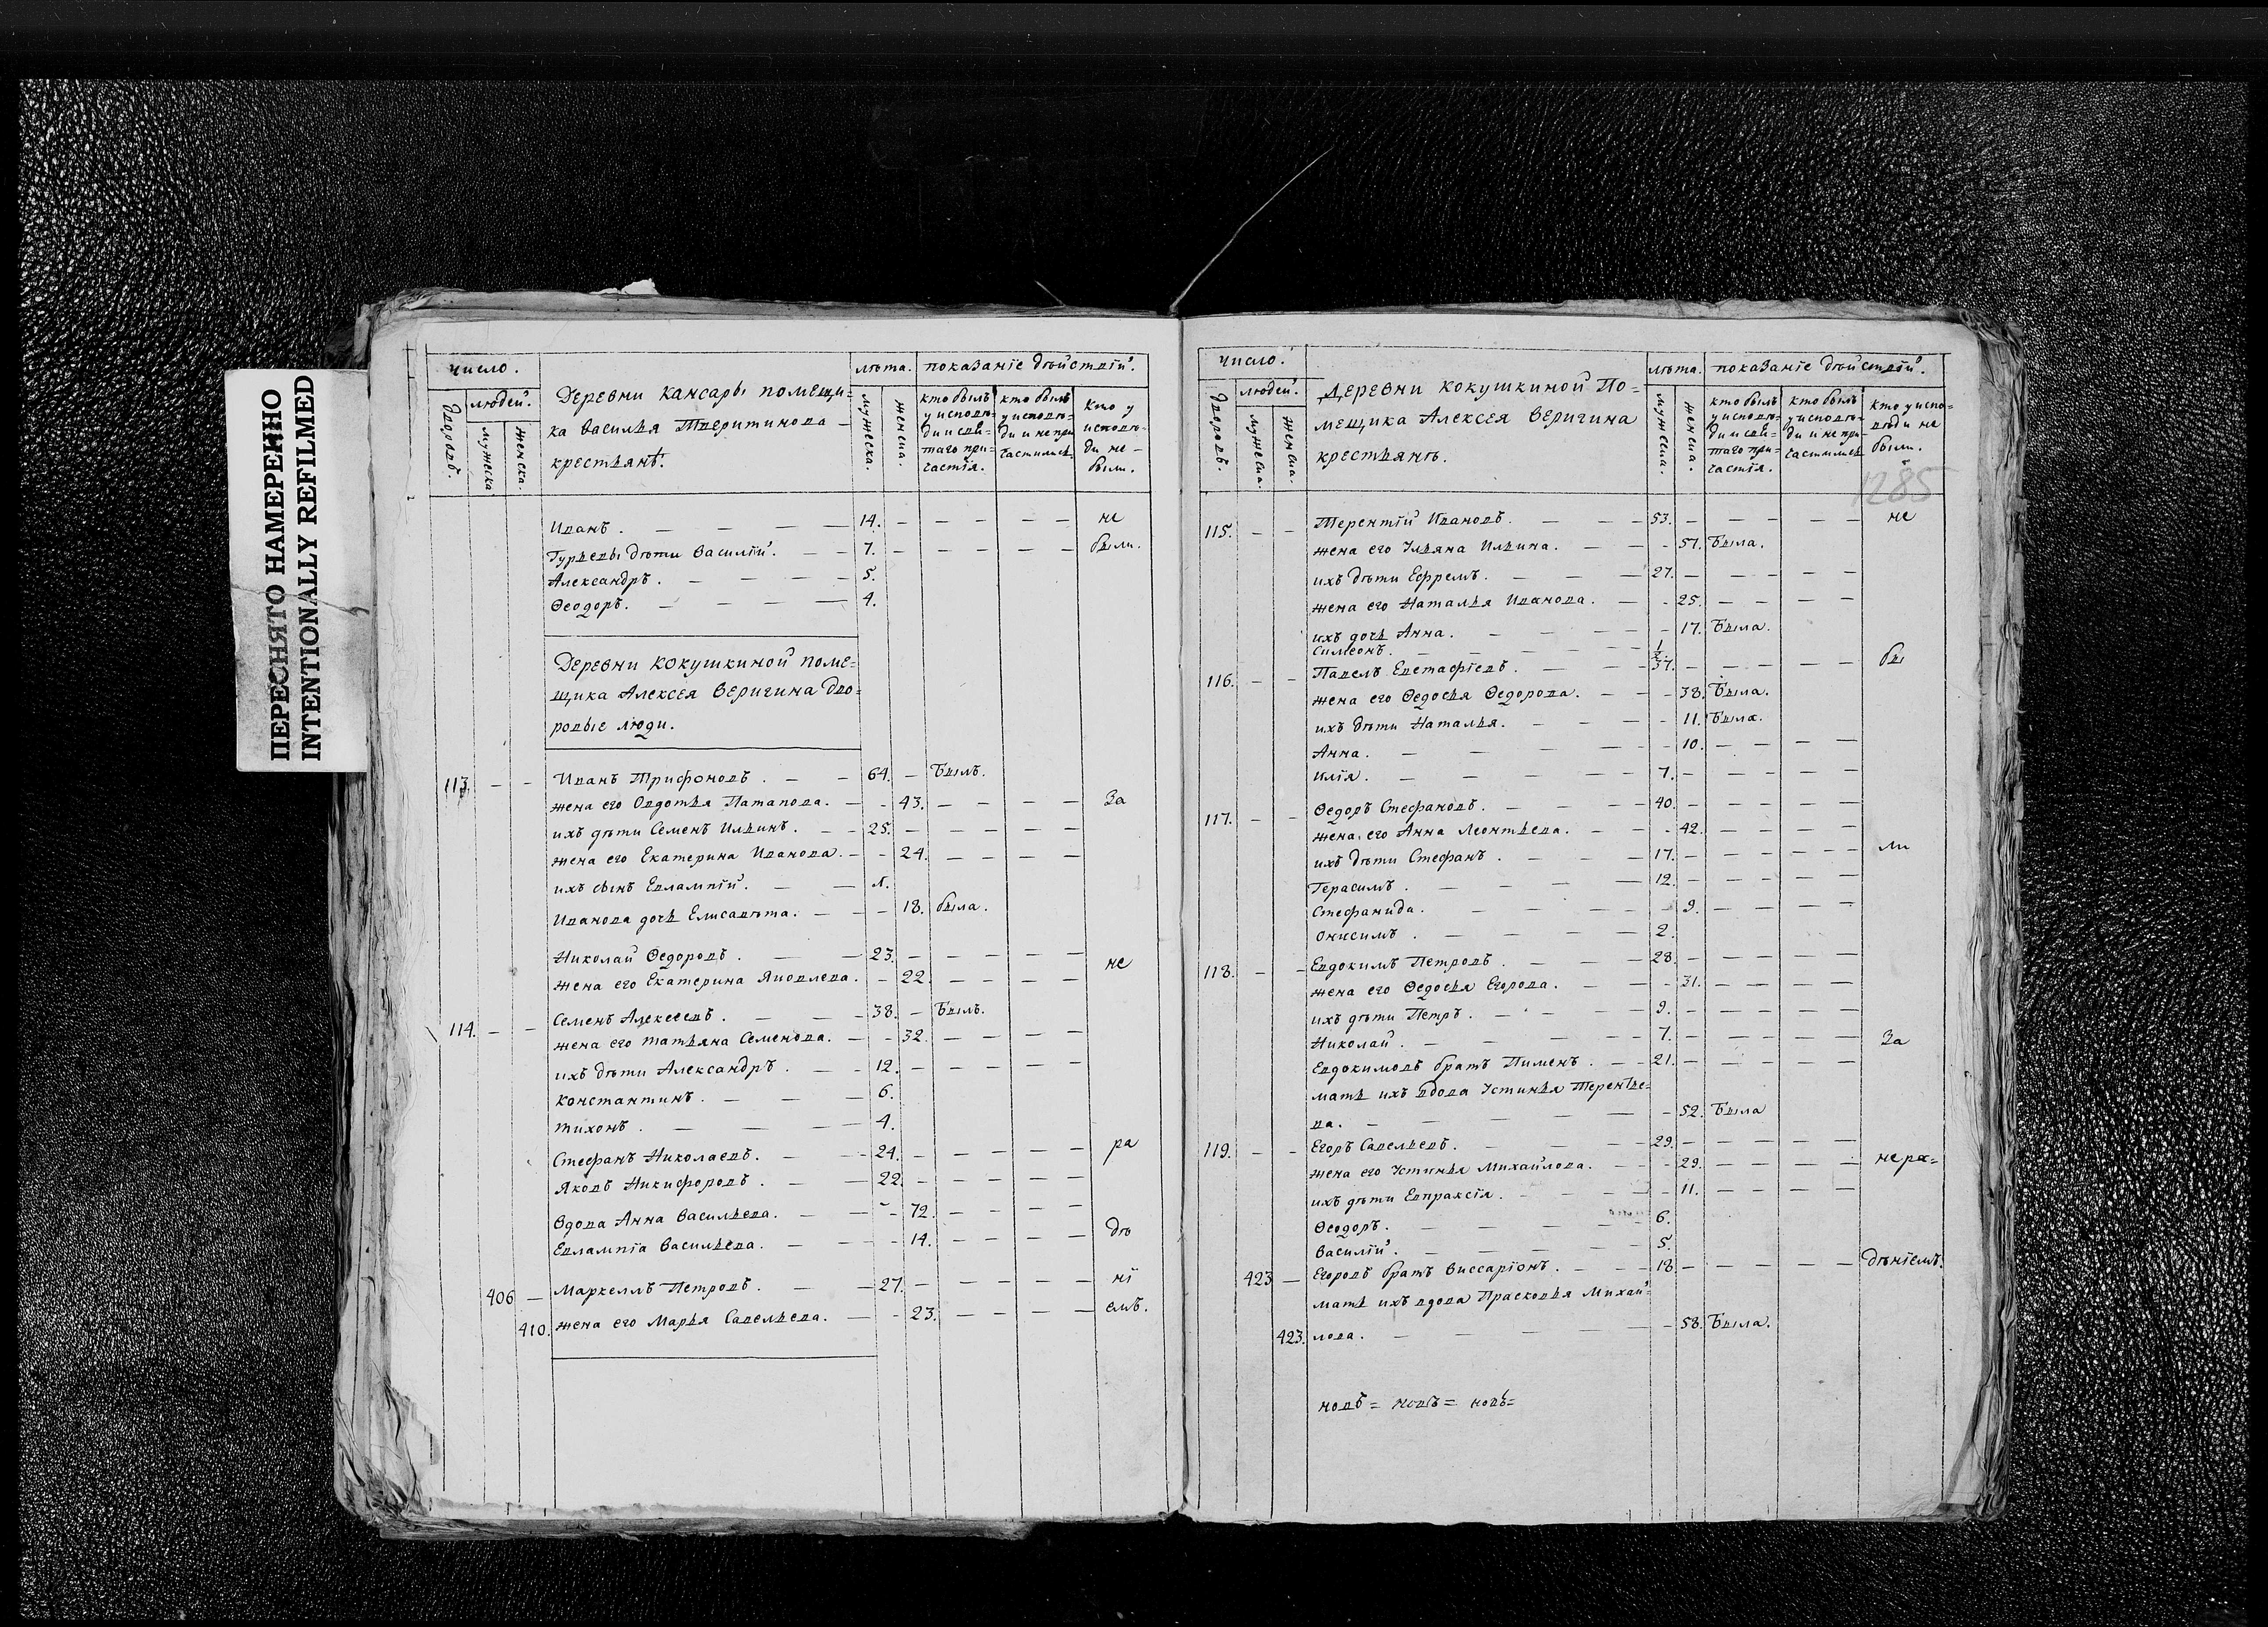 ПЕРЕСНЯТО НАМЕРЕННО
INTENTIONALLY REFILMED
число.
людей.
дворовъ.
мужеска
женска.
Деревни Кансары помещи=
ка Василья Тверитинова
крестьянъ.
лѣта.
мужеска.
женска.
показаніе дѣйствій.
кто былъ
у исповѣ=
ди и свя=
таго при=
частія.
кто былъ
у исповѣ=
ди и не при
частился
кто у
исповѣ-
ди не -
были.
Иванъ. 14. не
Гурьевы дѣти Василій. 7. были.
Александръ. 5.
Ѳеодоръ. 4.
Деревни Кокушкиной поме=
щика Алексея Веригина дво=
ровые люди.
113. Иванъ Трифоновъ. 64. Былъ.
жена его Овдотья Патапова. 43. За
ихъ дѣти Семенъ Ильинъ. 25.
жена его Екатерина Иванова. 24.
ихъ сынъ Евлампій. 1.
Иванова дочь Елисавѣта. 18. была.
Николай Ѳедоровъ. 23.
жена его Екатерина Яковлева. 22. не
114. Семенъ Алексеевъ. 38. Былъ.
жена его татьяна Семенова. 32.
ихъ дѣти Александръ. 12.
Константинъ. 6.
тихонъ. 4.
Стефанъ Николаевъ. 24. ра
Яковъ Никифоровъ. 22.
Вдова Анна Васильева. 72.
Евлампіа Васильева. 14. дѣ
406 Маркеллъ Петровъ. 27. ні
410. жена его Марья Савельева. 23. емъ.
число.
людей.
дворовъ.
мужеска.
женска.
Деревни Кокушкиной По=
мещика Алексея Веригина
крестьянъ.
лѣта.
мужеска.
женска.
показаніе дѣйствій.
кто былъ
у исповѣ=
ди и свя=
таго при=
частія.
кто былъ
у исповѣ=
ди и не при=
частился
кто у испо=
вѣди не
были.
1285
115. Терентій Ивановъ. 53. не
жена его Ульяна Ильина. 51. Была.
ихъ дѣти Ефремъ. 27.
жена его Наталья Иванова. 25.
ихъ дочь Анна. 17. Была.
Симеонъ. 1/2.
116. Павелъ Евстафіевъ. 37. бы
жена его Ѳедосья Ѳедорова. 38. Была.
ихъ дѣти Наталья. 11. Была.
Анна. 10.
Илія. 7.
117. Ѳедоръ Стефановъ. 40.
жена его Анна Леонтьева. 42.
ихъ дѣти Стефанъ. 17. ли
Герасимъ. 12.
Стефанида. 9.
Онисимъ. 2.
118. Евдокимъ Петровъ. 28.
жена его Ѳедосья Егорова. 31.
ихъ дѣти Петръ. 9.
Николай. 7. За
Евдокимовъ братъ Пименъ. 21.
мать ихъ вдова Устинья Терентье-
ва. 52. Была
119. Егоръ Савельевъ. 29.
жена его Устинья Михайлова. 29. нера=
ихъ дѣти Евпраксія. 11.
Ѳеодоръ. 6.
Василій. 5.
423 Егоровъ братъ Виссаріонъ. 18. дѣніемъ.
мать ихъ вдова Прасковья Михай=
423. лова. 58. Была.
новъ= новъ= новъ=